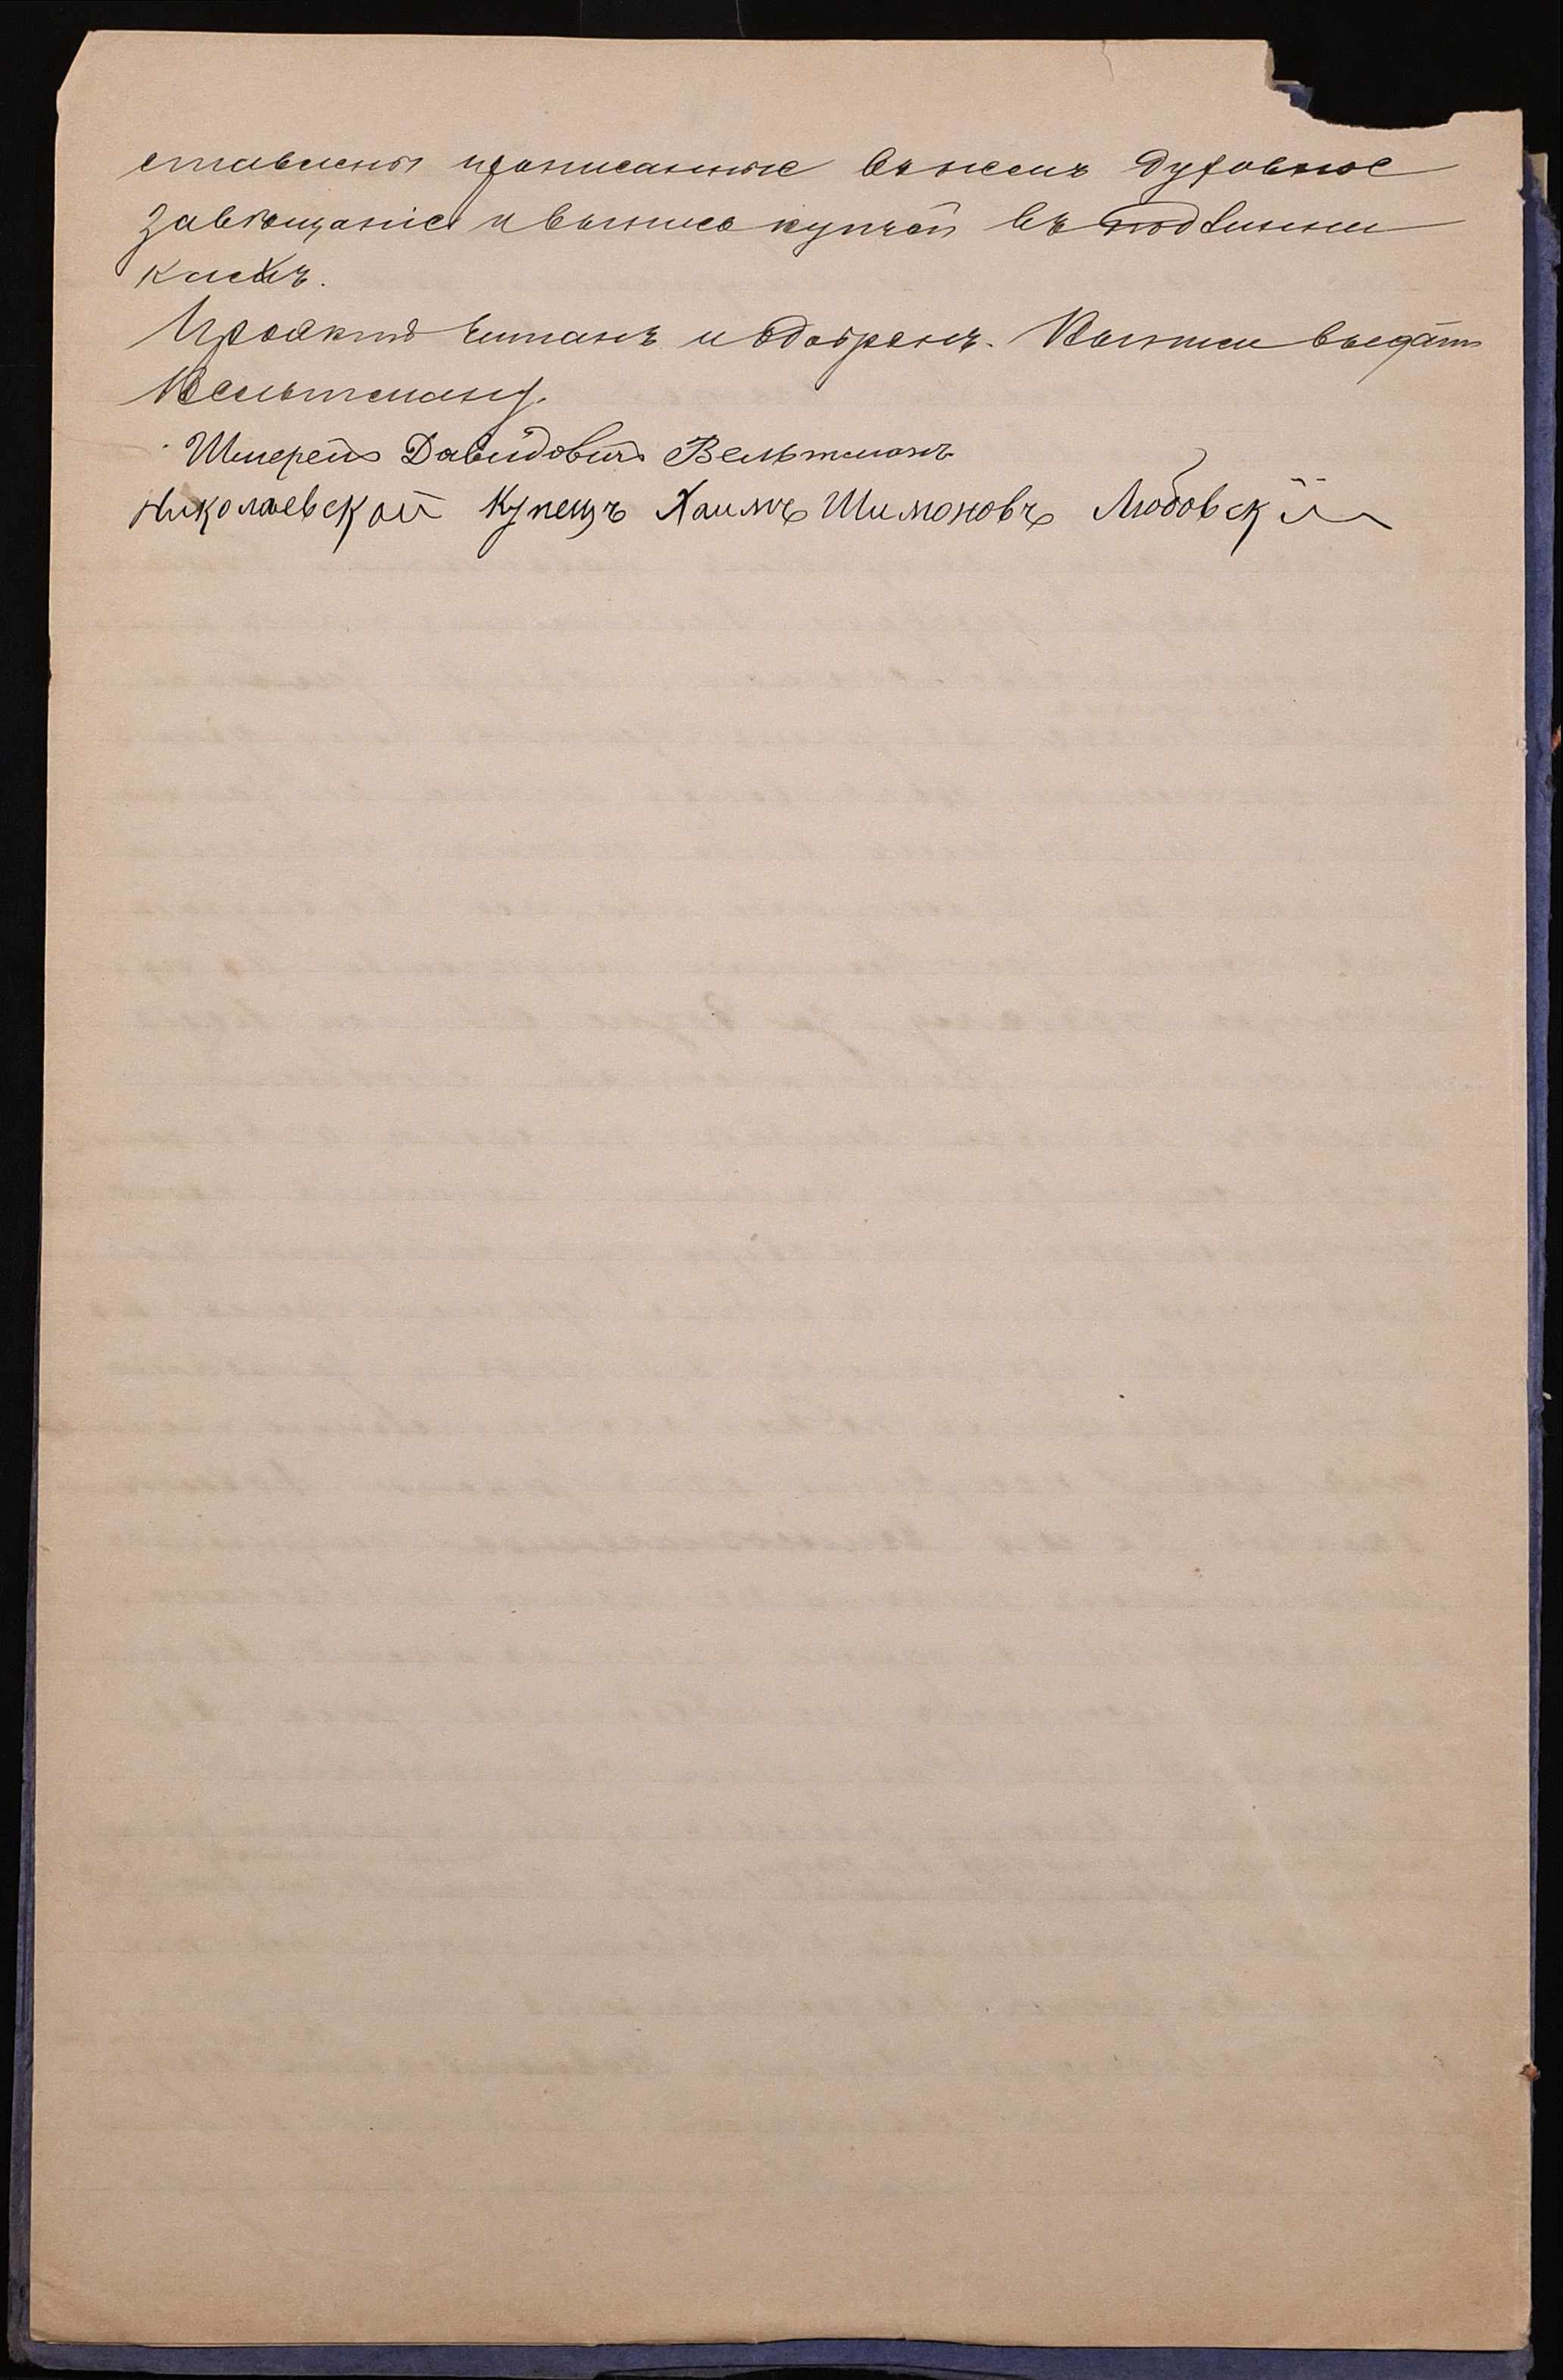 ставлены прописанные въ немъ духовное
завѣщаніе и выпись купчей въ подлинни
кахъ.
Проэктъ читанъ и одобренъ. Выпись выдать
Вельтману.
Шмерель Давидовичъ Вельтманъ
Николаевской купецъ Хаимъ Шимоновъ Любовскій